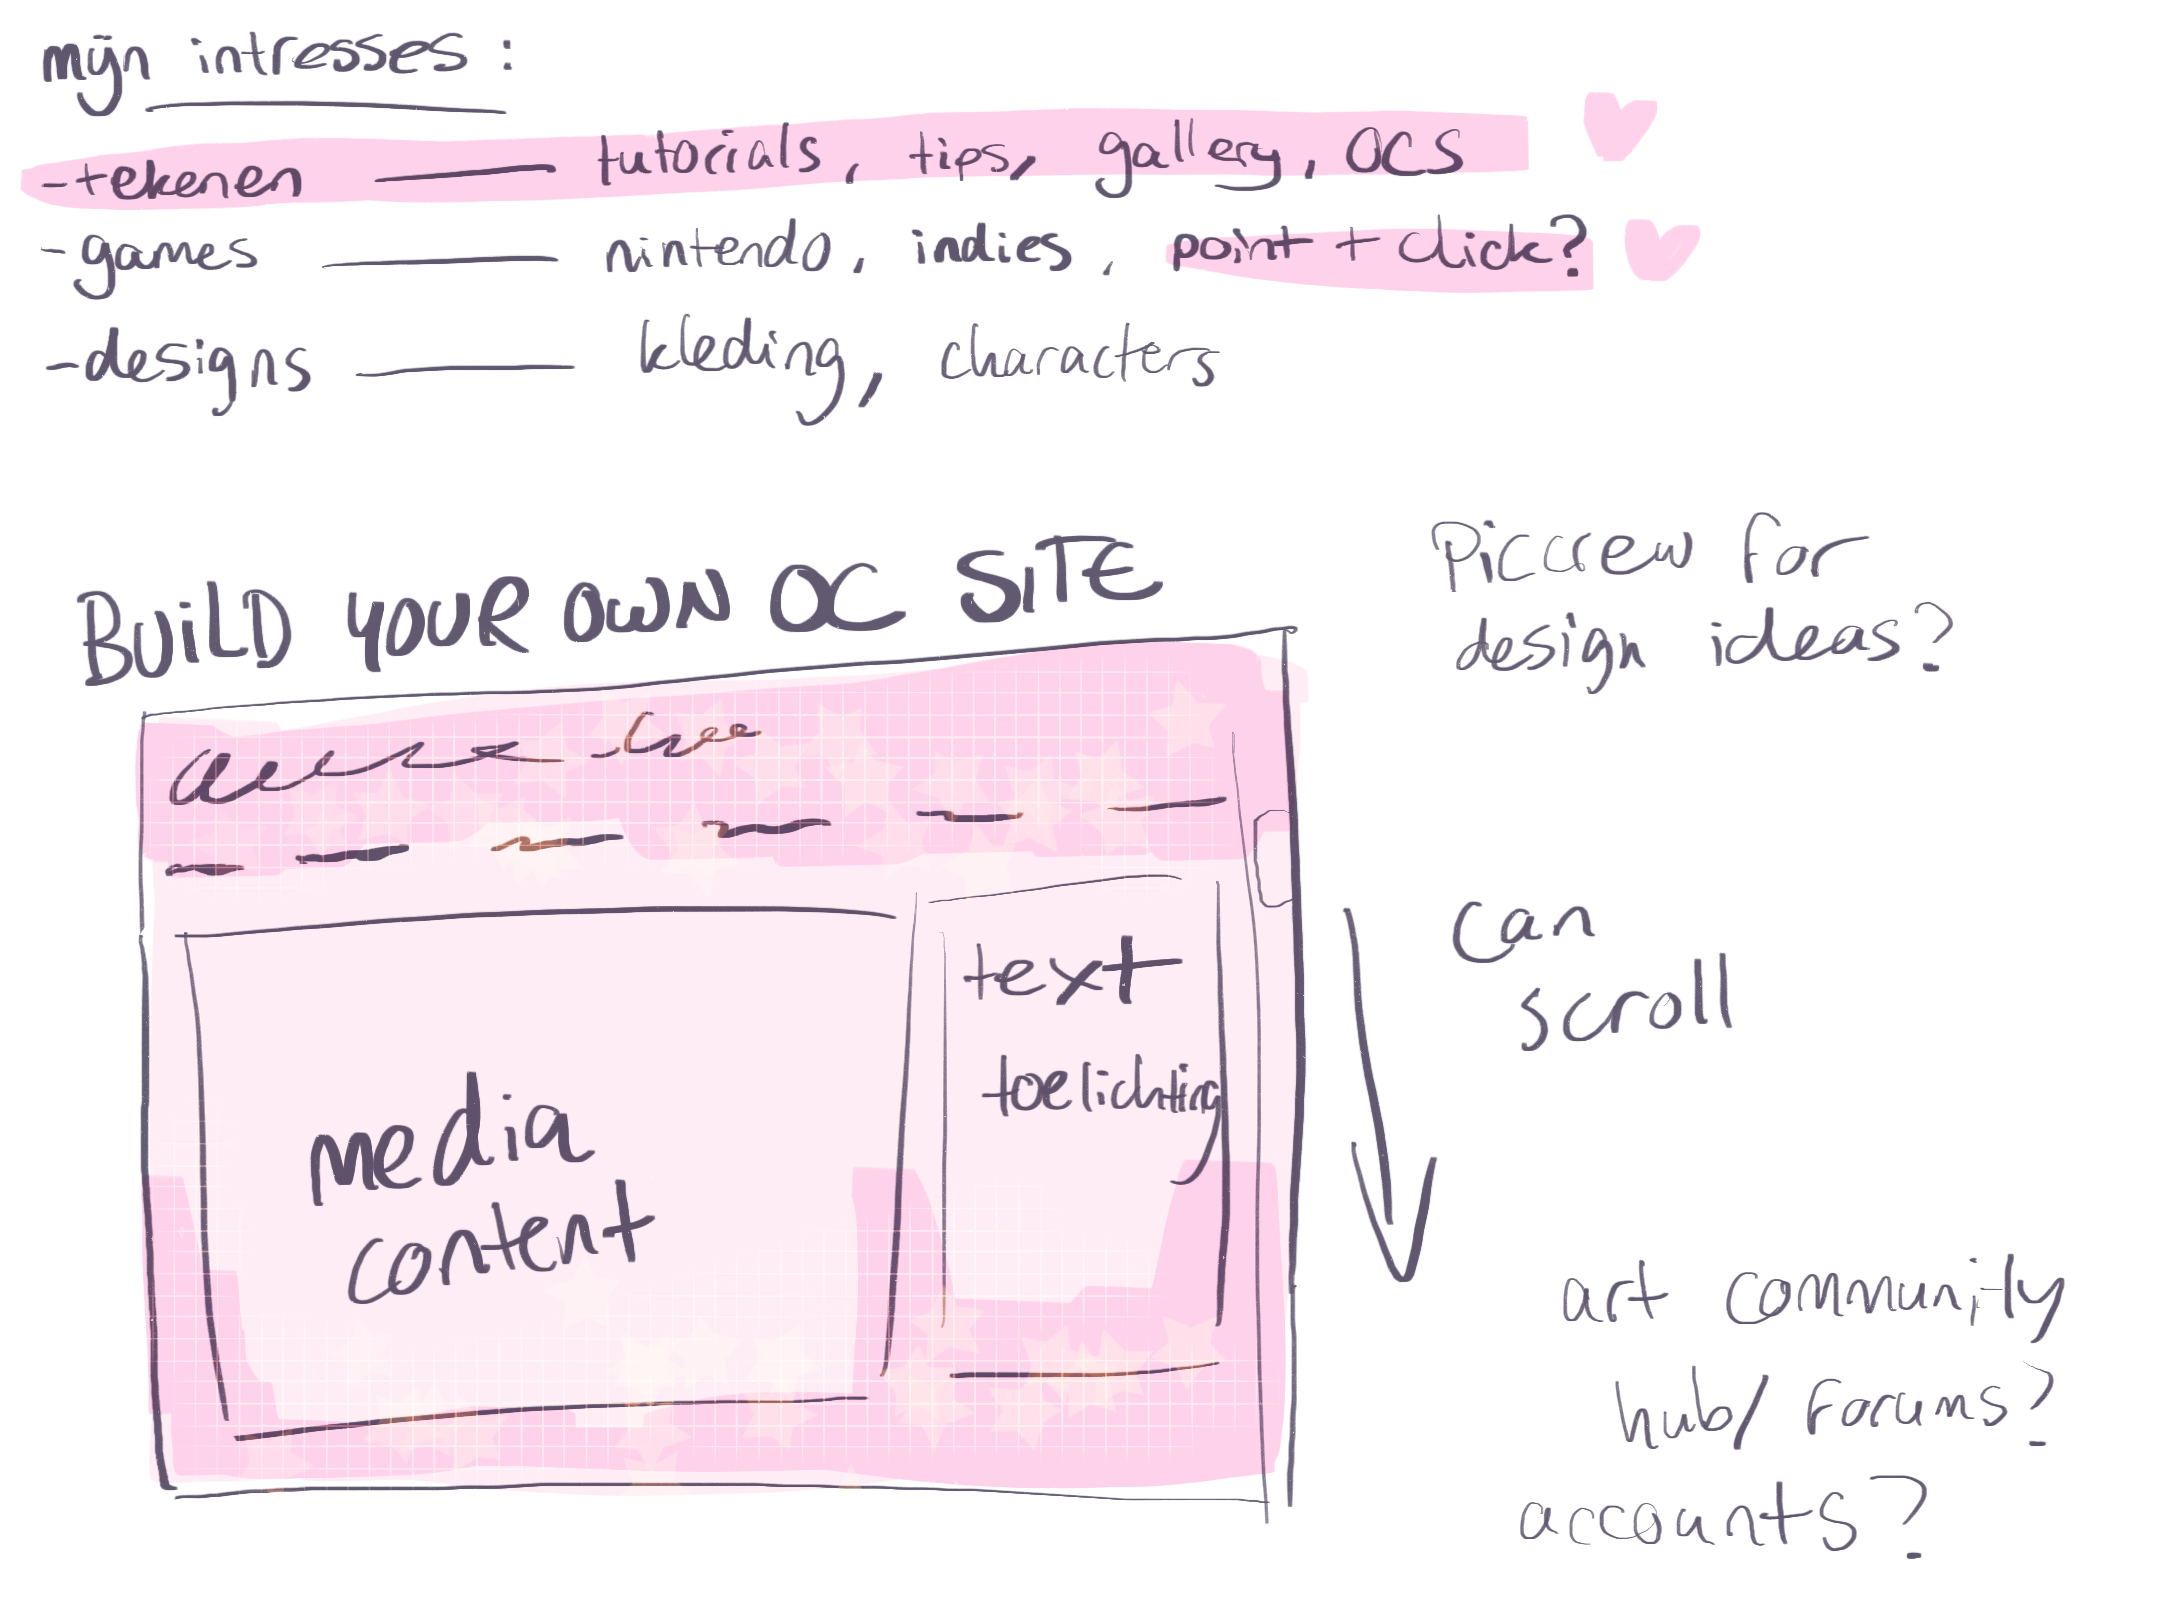 mijn intresses :
-tekenen — tutorials, tips, gallery, OCS
-games — nintendo, indies, point + click?
-designs — kleding, characters
BUILD YOUR OWN OC SITE
Piccrew for
design ideas?
text
toelichting
media
content
can
scroll
art community
hub/ forums?
accounts?